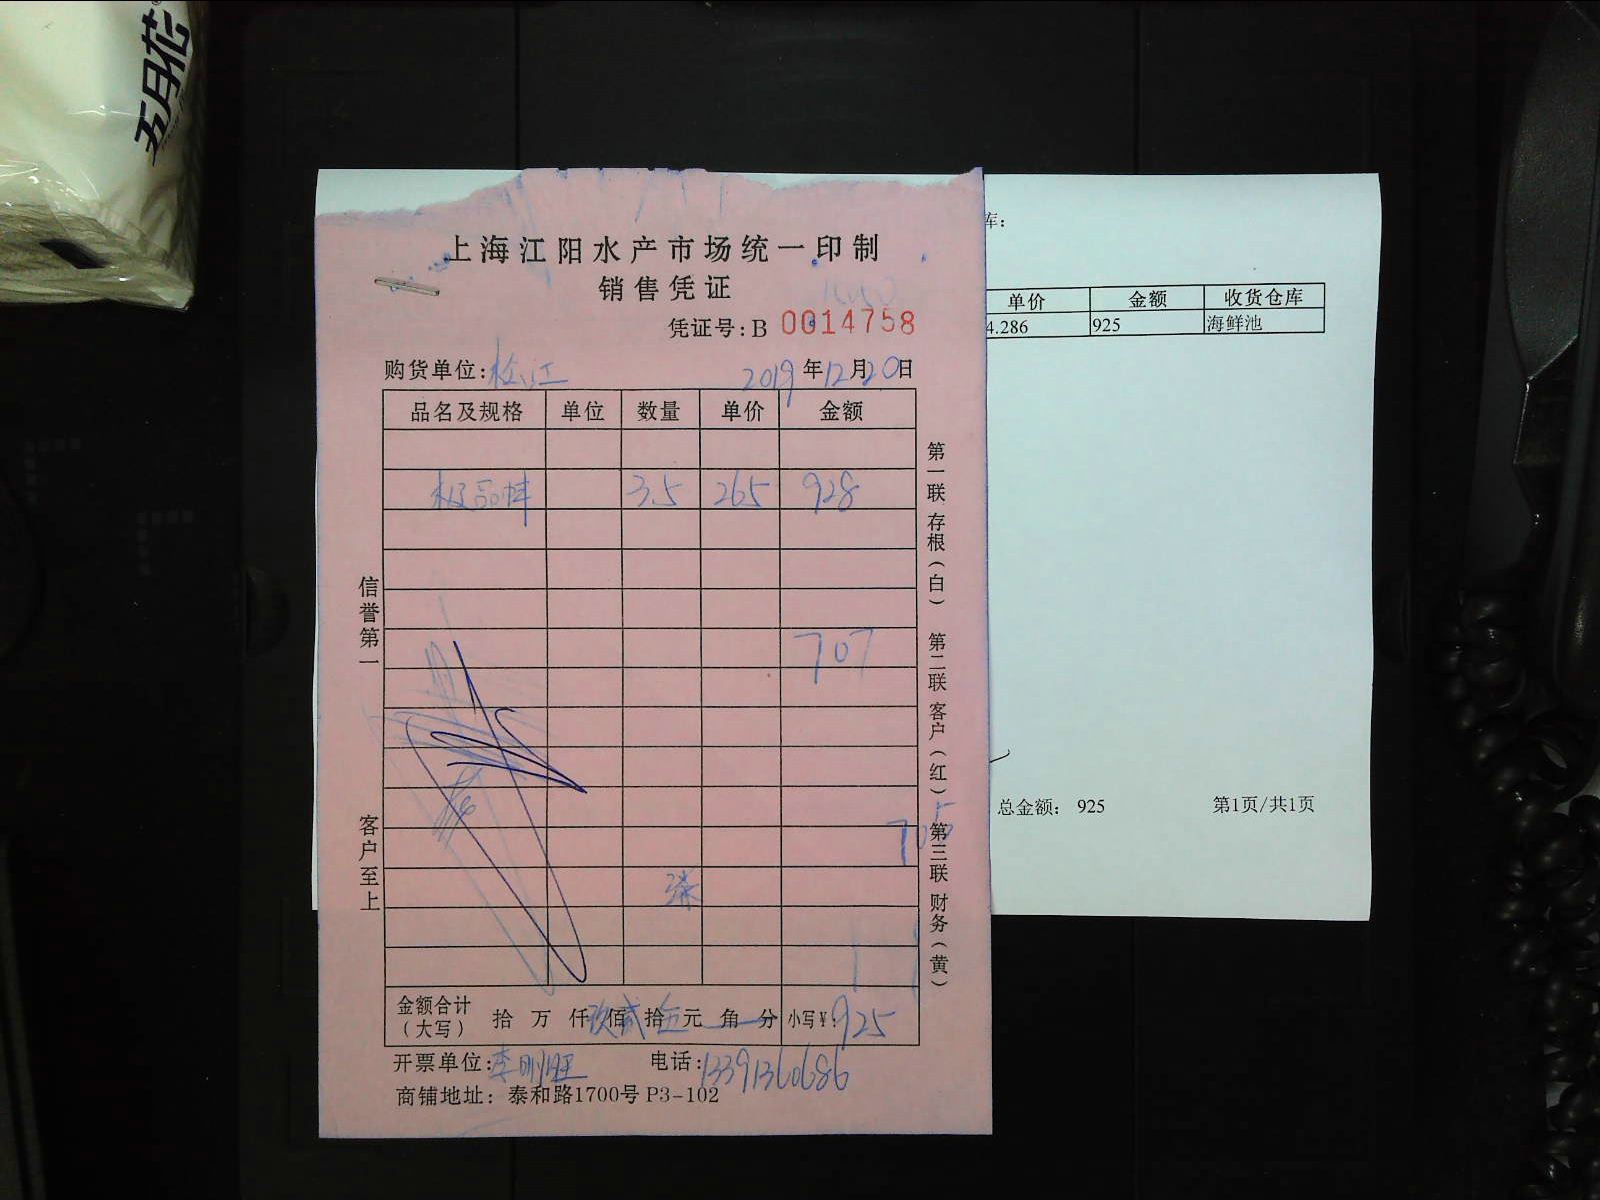 五月花
库：
单价 金额 收货仓库
4.286 925 海鲜池
总金额： 925 第1页/共1页
上海江阳水产市场统一印制
销售凭证
凭证号：B 0014758
购货单位：松江 2019年12月20日
品名及规格 单位 数量 单价 金额
极品蚌 3.5 265 928
707
信誉第一
客户至上
第一联 存根（白） 第二联 客户（红） 第三联 财务（黄）
金额合计（大写） 拾 万 仟 玖佰贰拾伍元 角 分 小写¥：925
开票单位：李刚旺 电话：13391360686
商铺地址：泰和路1700号 P3-102